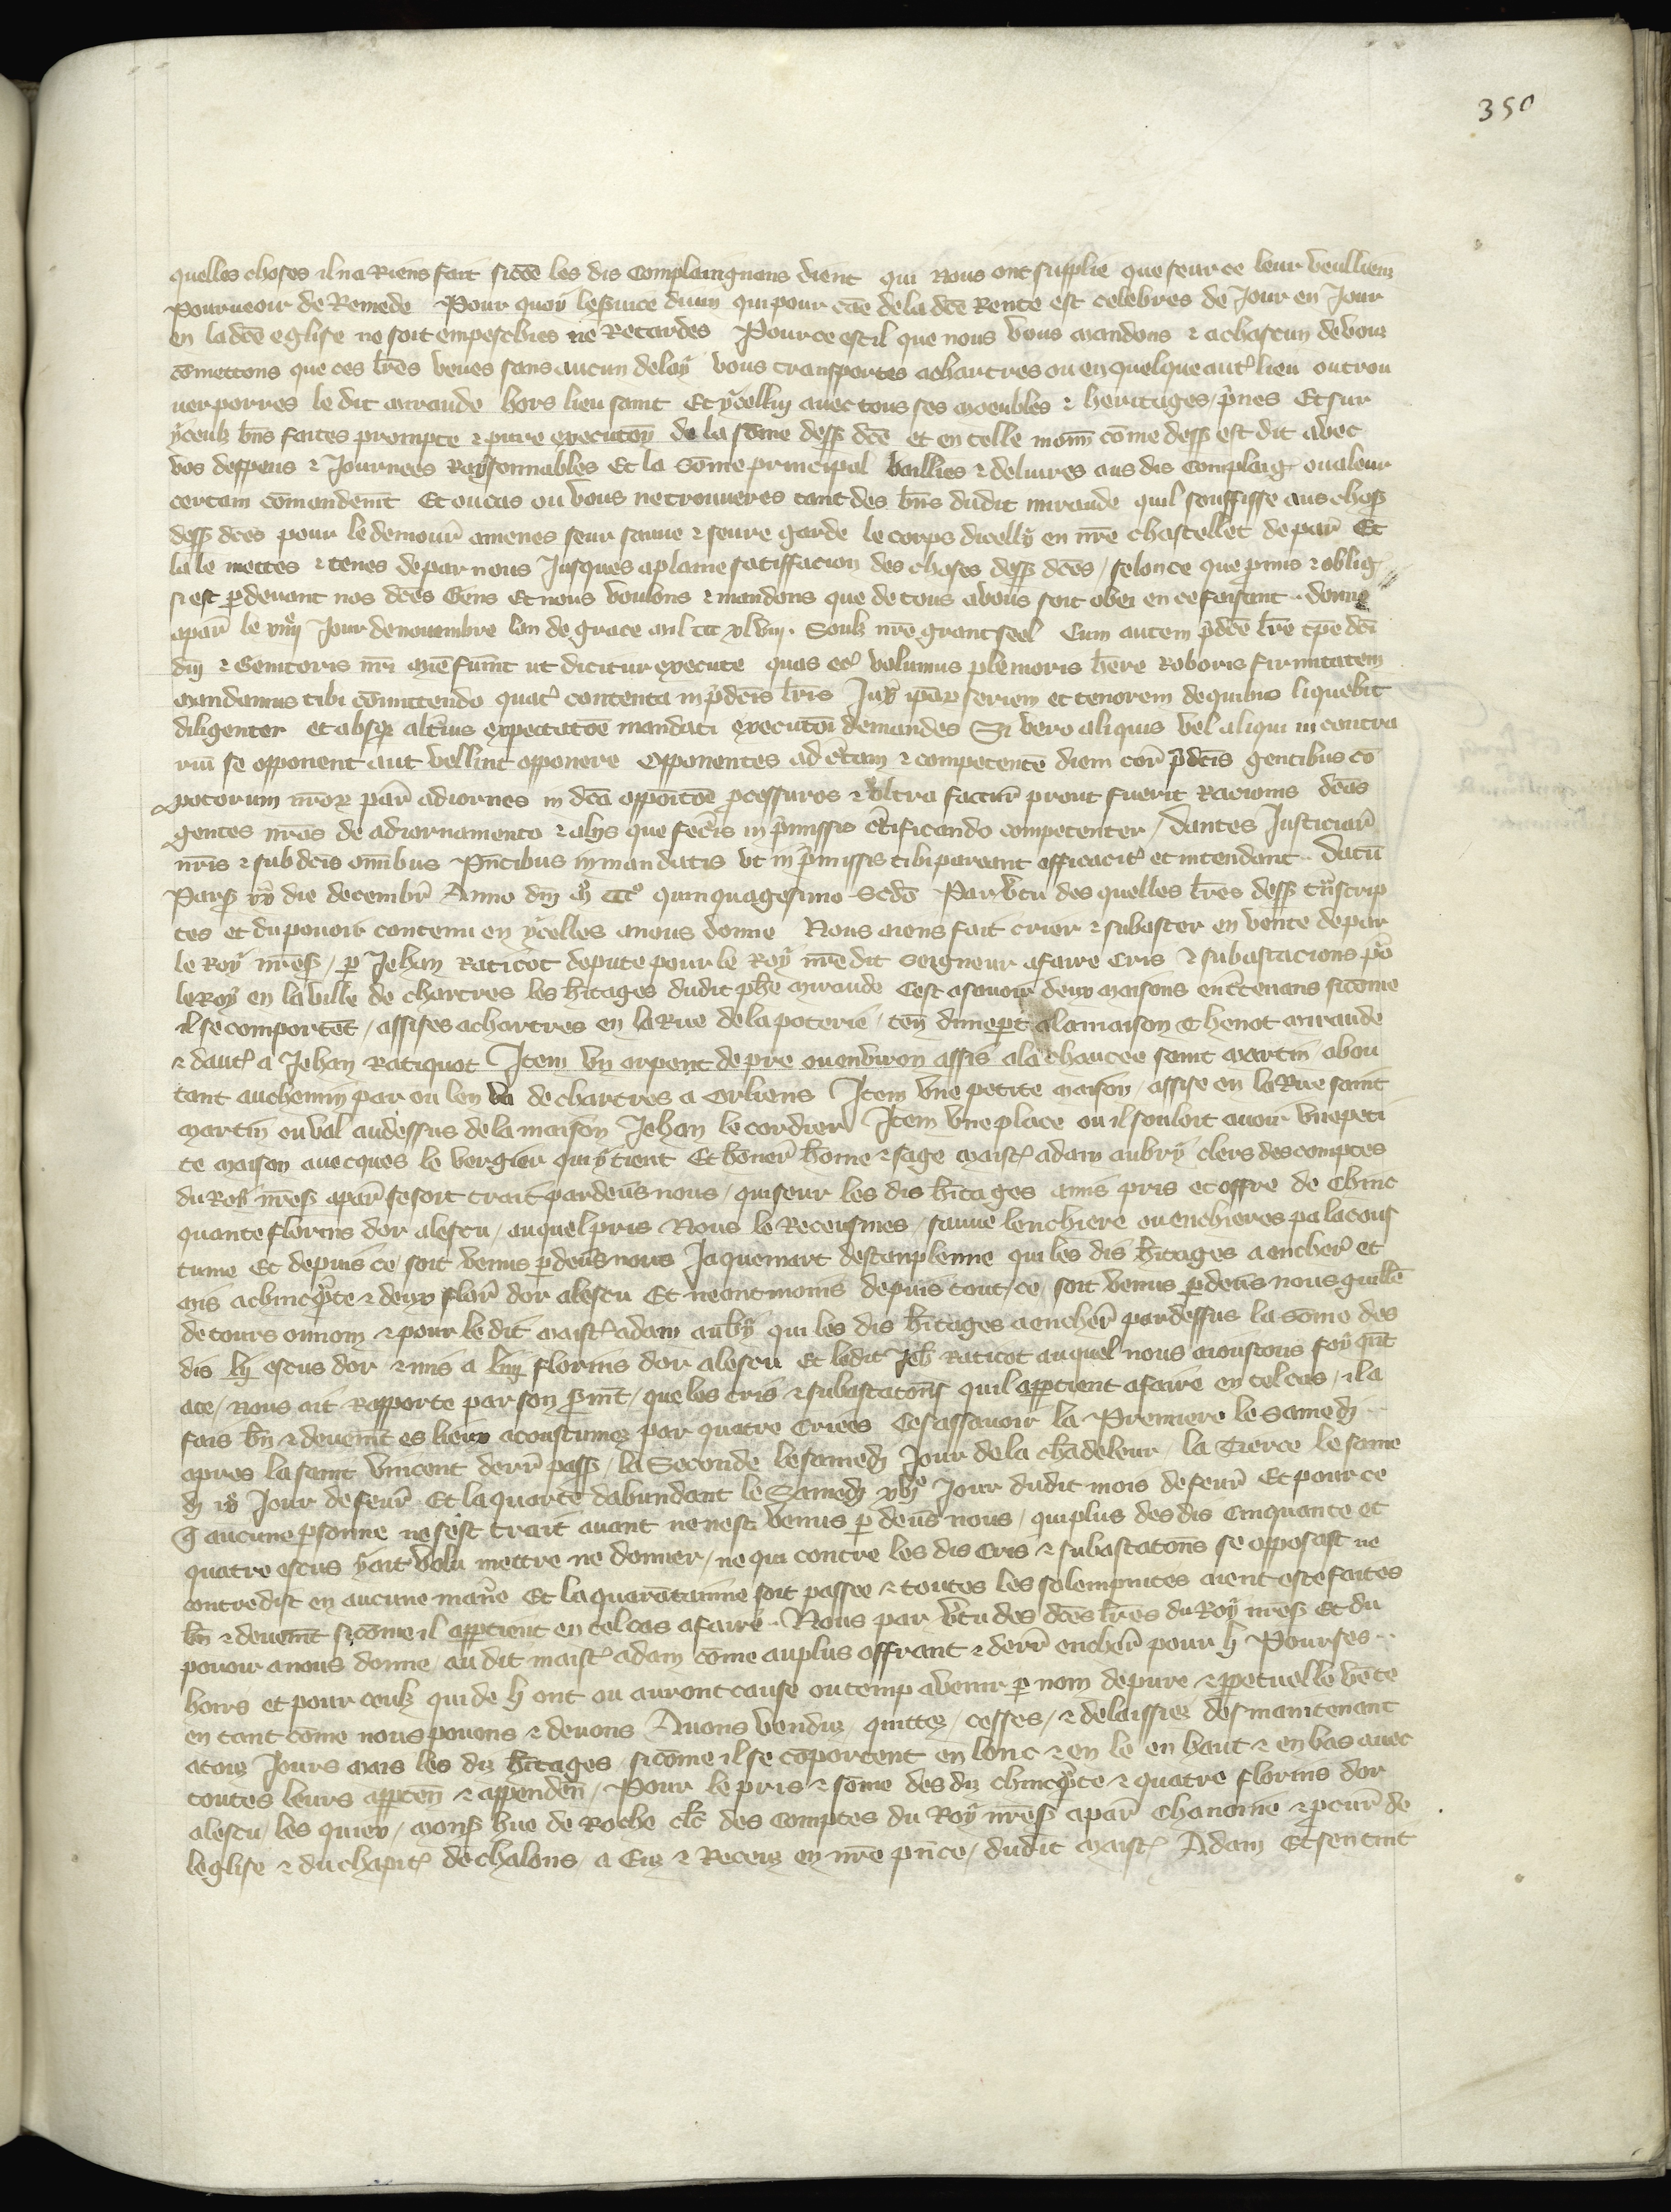 350
quelles choses il na Riens fait sicōe les dis Complaingnans dient qui Nous ont supplie que seur ce leur veulliens
Pourueoir de Remede Pour quoy leseruice diuin qui pour cāe de la dcē Rente est celebres de Jour en Jour
en la dcē eglise ne soit empeschies ne Retardes Pource est il que nous vous mandons & achascun de vous
cōmettons que ces lrēs veues sans aucun delay vous transportes achartres ou en quelque autʳ lieu ou trou
uer porres le dit miraude hors lieu saint Et ycellui auec tous ses moeubles & heritages pʳnes Et sur
yceulz bn̄s faites prompte & pure execution de la sōme dess dcē et en telle mani cōme dess est dit avec
vos despens & Journees Raysonnables Et la sōme principal baillies & deliures aus dis Complaig ou aleur
certain cōmandemt Et ou cas ou vous ne trouueres tant des bn̄s dudit miraude quil souffisse aus chos
dess dcēs pour le demour amenes seur sauue & seure garde le corps dicelly en nrē chastellet de par Et
la le mettes & tenes de par nous Jusques a plaine satisfacion des choses dess dcēs / selonce que pmis & oblig
si est pdeuant nos dcēs Gens Et nous voulons & mandons que de tous a vous soit obei en ce faisant donne
apar le Jour de nouembre lan de grace mil ccc xlviij. Soulz nrē grant seel Cum autem pdcē lrē tpē dci
dn̄i & Genitoris nr̄i mīe fuint ut dicitur execute quas etʳ volumus plenioris hēre Roboris firmitatem
mandamus tibi cōmittendo quatʳ contenta in pdcīs lrīs Juxᵃ ipāꝝ seriem et tenorem de quibus liquebit
diligenter et absqꝫ altīus expectatōe mandati executōi demandes Si vero aliquis vel aliqui in contra
riū se opponent aut vellint opponere Opponentes ad ctam & competentē diem corā pdcīs gentibus cō
potorum nrōꝝ par adiornes in dcā oppōitōe pcessuros & vltra facturi prout fuerit Racionis dcās
gentes nrās de adiornamento & aliis que fecis in pmissis ctificando competenter / Dantes Justiciar
nr̄is & subdcīs omībus pntibus in mandatis vt in pmissis tibi pareant efficacitʳ et intendant Datū
Pars die decembr Anno dn̄i mº cccº quinquagesimo Scdō Par vtu des quelles lrēs dess tnscrip
tes et du pouoir contenu en ycelles anous donne Nous aiens fait crier & subaster en vente depar
le Roy nrēs / p Jehan Raticot depute pour le Roy nrē dit seigneur afaire Cris & subastacions po
le Roy en la ville de chartres les hitages dudit phē miraude Cest asauoir deux maisons entretenans sicōme
il se comportēt / assises achartres en la Rue de la poterie / ten dune pt ala maison Thenot miraude
& dautʳ a Jehan Ratiquot Item vn arpent de pre ou enuiron assis ala chaucee saint martin abou
tant au chemin par ou len va de chartres a Orliens Item vne petite maison / assise en la Rue saint
martin ou val au dessus de la maison Jehan le cordier Item vne place ou il souloit auoir vne peti
te maison auecques le vergier qui y tient Et honner home & sage maistʳ adam aubry clers des comptes
du Roy nrēs apar se soit trait pardeus nous / qui seur les dis hitages a mis pris et offre de Chinc
quante florins dor alescu / auquel pris Nous le Receusmes / sauue lenchiere ou enchieres pa lacous
tume Et depuis ce / soit venus pdeus nous Jaquemart destenplenne qui les dis hitages a encher et
mis achincqte & deux flor dor alescu Et neantmoins depuis tout ce / soit venus pdeus nous guille
de tours ou nom & pour le dit maistʳ adam aubry qui les dis hitages a encher pardessus la sōme des
dis lij escus dor & mis a liiij florins dor alescu Et ledit Jeh Raticot auquel nous aioustons foy qut
ace / nous ait Rapporte par son smt / que les cris & subastatōns quil apptient afaire en tel cas / il a
fais bn̄ & deuemt es lieux acoustumez par quatre Criees Cest assauoir la Premiere le samedi
apres la saint vincent derr pass / la Seconde le samedi Jour de la chādeleur / la Tierce le same
di ixᵉ Jour de feur Et la quarte dabundant le Samedi xvjᵉ Jour dudit mois de feur Et pour ce
q aucune psonne ne sest trait auant ne nest venus p deus nous / qui plus des dis Cinquante et
quatre escus y ait volu mettre ne donner / ne qui contre les dis Cris & subastatōns se opposast ne
contredist en aucune maniē Et la quarātainne soit passee & toutes les solempnites aient este faites
bn̄ & deuemt sicōme il apptient en tel cas afaire Nous par vtu des dcēs lrēs du Roy nrēs Et du
pouoir anous donne / au dit maistʳ adam cōme auplus offrant & derr encher pour li Pour ses
hoirs et pour ceulz qui de li ont ou auront cause ou temp avenir p nom de pure & ppetuelle vēte
en tant cōme nous pouons & deuons Auons venduz / quittez / cesses / & delaissiez des maintenant
atouz Jours mais les diz hitages / sicōme il se cōportent en lonc & en le en haut & en bas auec
toutes leurs apptēn & appenden / Pour le pris & sōme des diz chincqte & quatre florins dor
alescu / les quiex / mons hue de Roche clc des Comptes du Roy nrēs apar Chanoine & pcur de
leglise & du chapitʳ de chalons / a Euz & Receuz en nrē pnce / dudit maistʳ Adam Et sen tint